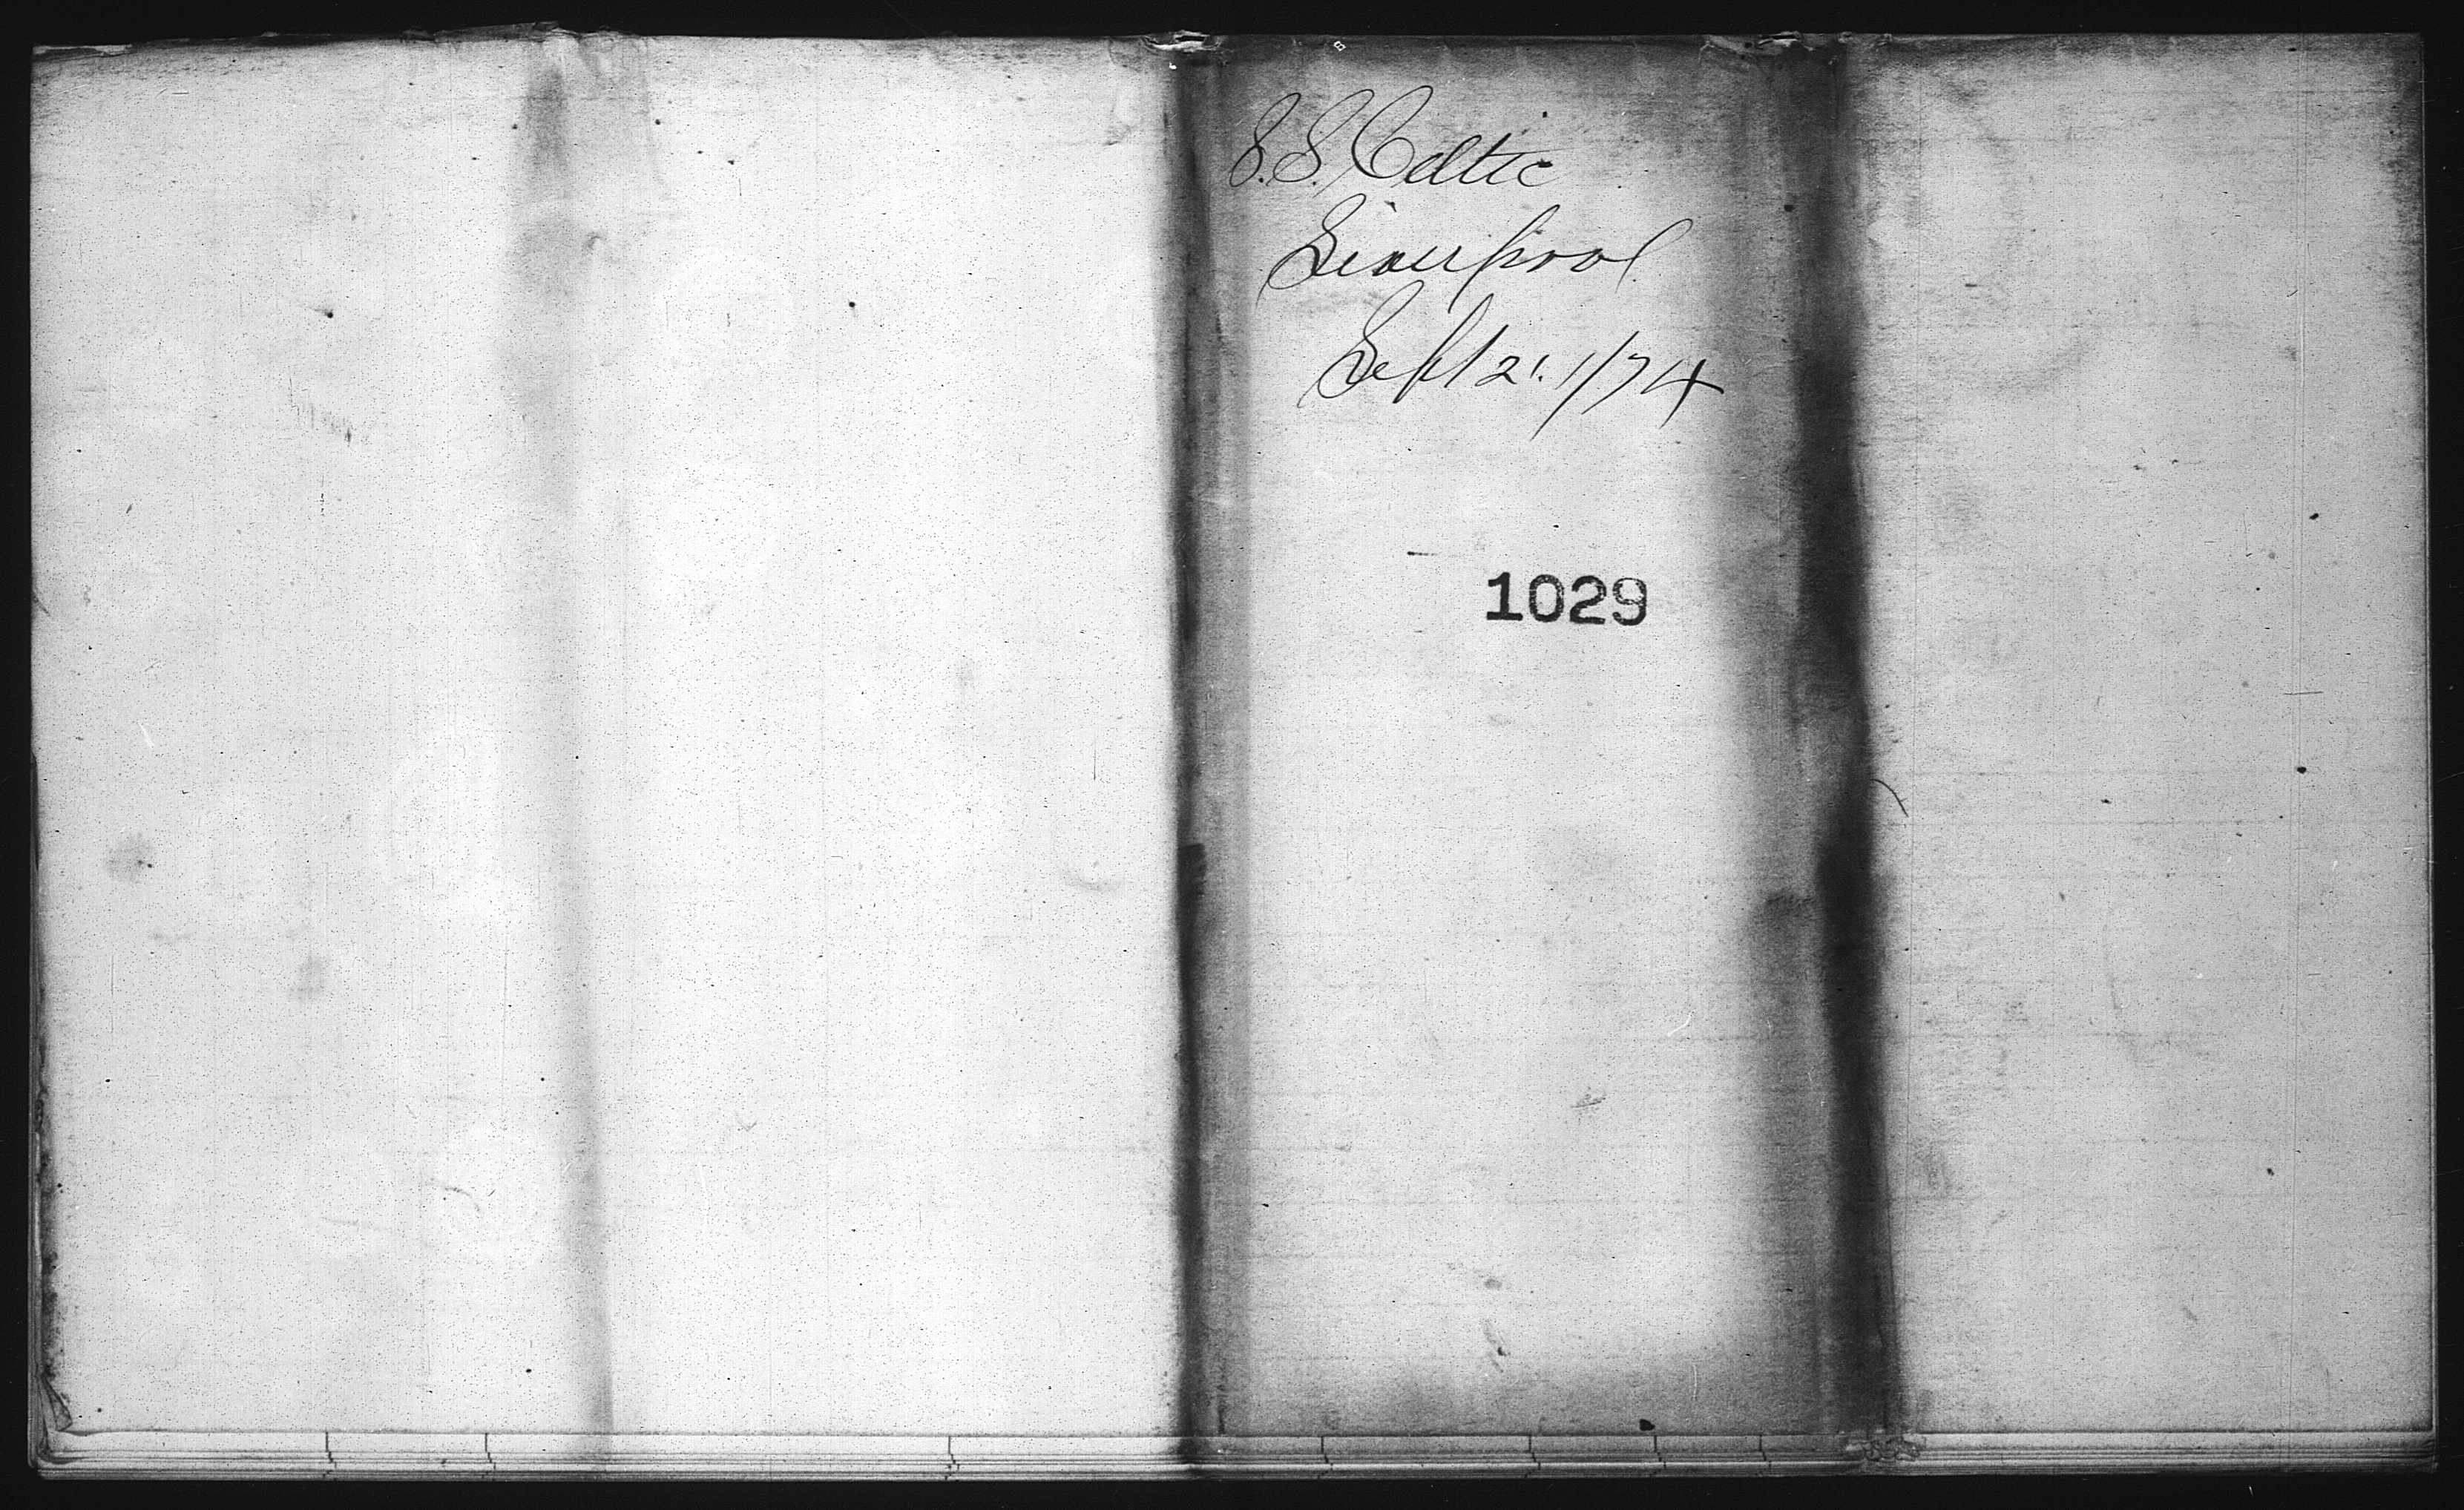 S.S. Celtic
Liverpool
Sept 21/74
1029